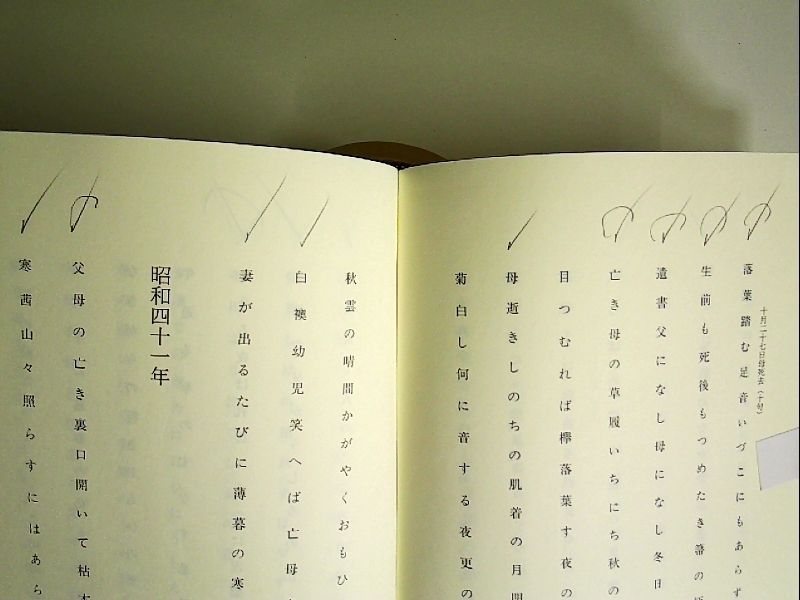 十月二十七日母死去(十句)
落葉踏む足音いづこにもあらず
生前も死後もつめたき箒の
遺書父になし母になし冬日
亡き母の草履いちにち秋の
目つむれば欅落葉す夜の
母逝きしのちの肌着の月
菊白し何に音する夜更の
秋雲の晴間かがやくおもひ
白襖幼児笑へば亡母
妻が出るたびに薄暮の寒
昭和四十一年
父母の亡き裏口開いて枯木
寒茜山々照らすにはあら